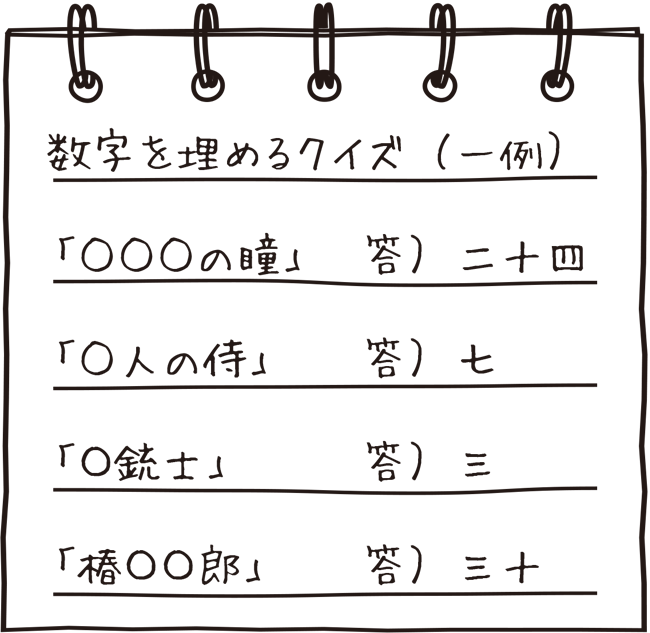 数字を埋めるクイズ（一例）
「○○○の瞳」 答） 二十四
「○人の侍」 答） 七
「○銃士」 答） 三
「椿○○郎」 答） 三十